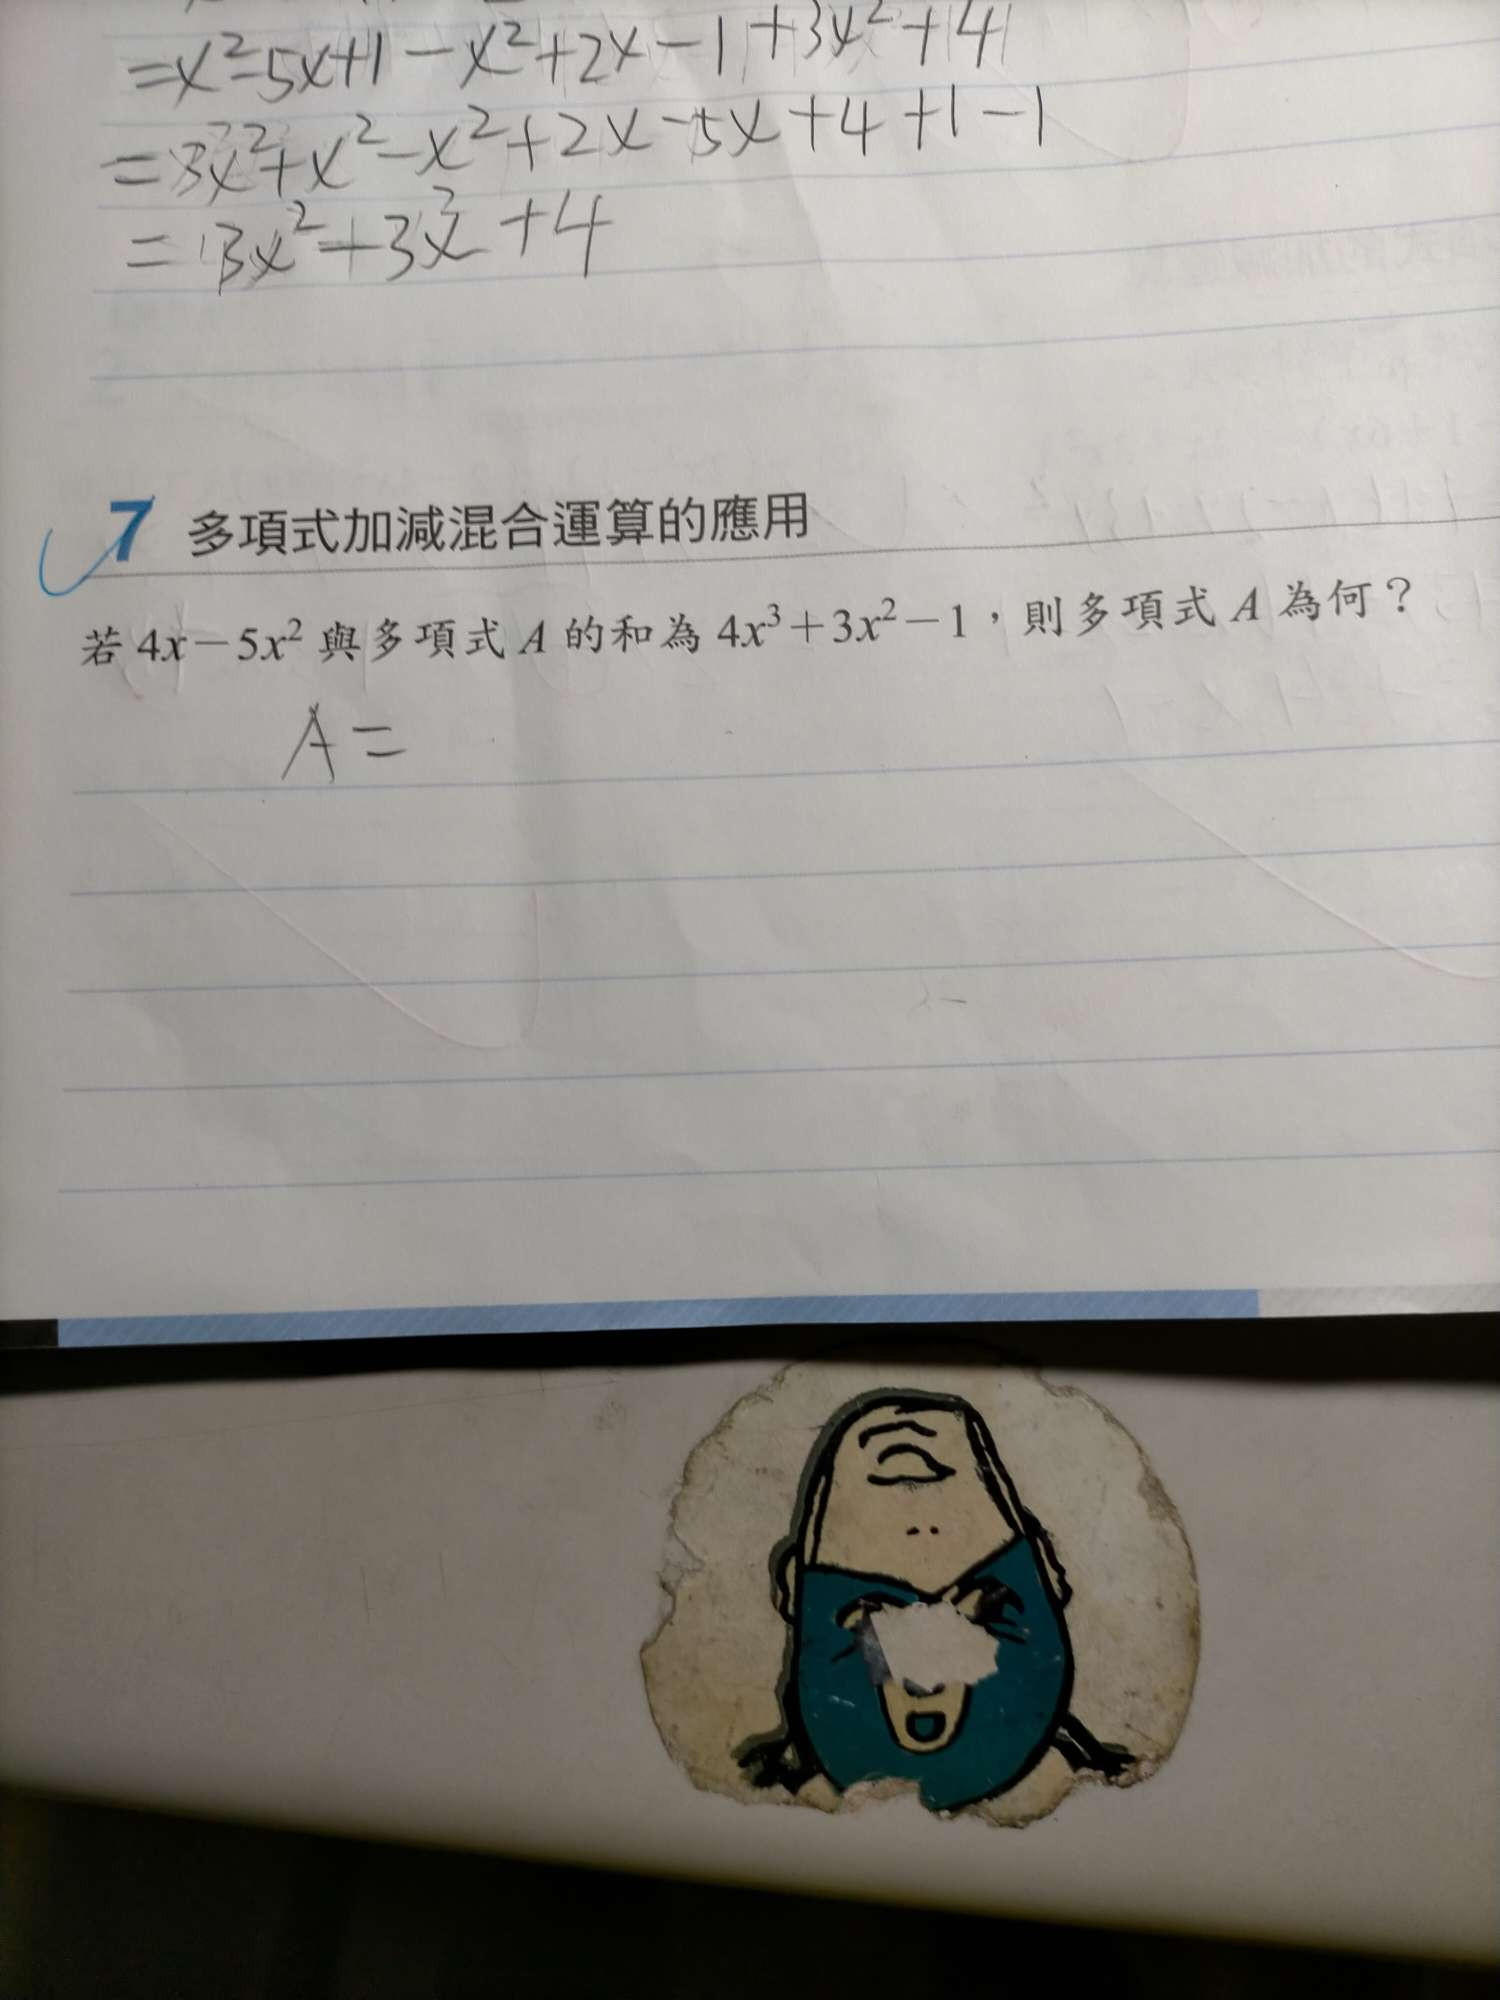 =x²-5x+1-x²+2x-1+3x²+4
=3x²+x²-x²+2x-5x+4+1-1
=3x²+3x²+4
7 多項式加減混合運算的應用
若 4x-5x² 與多項式 A 的和為 4x³+3x²-1，則多項式 A 為何？
A=